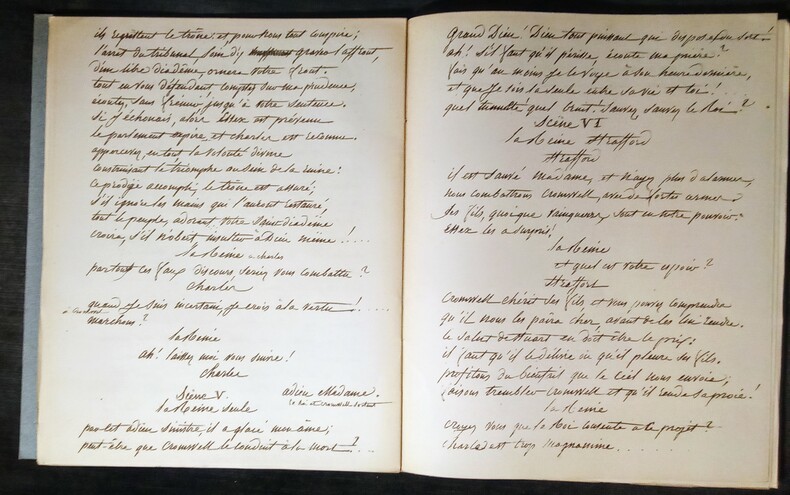 ils regrettent le trône, et pour vous tout conspire;
l'arrêt du tribunal, loin de graver l'affront,
d'un libre diadème, ornera votre front.
tout en vous défendant, comptez sur ma prudence,
écoutez, sans frémir jusqu'à votre sentence.
Si j'échouais, alors Essex est prévenu
le parlement expire, et Charles est reconnu.
appercevez, en tout la volonté divine
construisant le triomphe au sein de la ruine!
Ce prodige accompli, le trône est assuré;
S'il ignore les mains qui l'auront restauré
tout le peuple, adorant votre Saint diadème
croira, s'il n'obéit, insulter à Dieu même! ....
La Reine à Charles
par tout ces faux discours, seriez vous combattu?
Charles
quand je suis incertain, je crois à la vertu! ....
à Cromwel
marchons?
La Reine
ah! laissez moi vous suivre!
Charles
adieu Madame.
Le Roi et Cromwell sortent
Scène V.
La Reine seule
par cet adieu sinistre, il a glacé mon âme;
peut-être que Cromwell le conduit à la mort? ...
Grand Dieu! Dieu tout puissant qui disposes du sort!
ah! s'il faut qu'il périsse, écoute ma prière?
fais qu'au moins je le voye à son heure dernière,
et que je sois la seule entre sa vie et toi! ...
quel tumulte! quel bruit! Sauvez sauvez le Roi?
Scène VI
La Reine Strafford
Strafford
il est sauvé Madame, et n'ayez plus d'alarmes,
nous combattrons Cromwell, avec de fortes armes.
Ses fils, quoique vainqueurs, sont en notre pouvoir.
Essex les a surpris!
La Reine
et quel est votre espoir?
Strafford
Cromwell chérit ses fils et vous pouvez comprendre
qu'il nous les paîra cher, avant de les lui rendre.
le salut de Stuart en doit être le prix:
il faut qu'il le délivre ou qu'il pleure ses fils.
profitons du bienfait que le Ciel nous envoie,
faisons trembler Cromwell et qu'il rende sa proie!
La Reine
Croyez vous que le Roi consente à ce projet?
Charles est trop magnanime ......